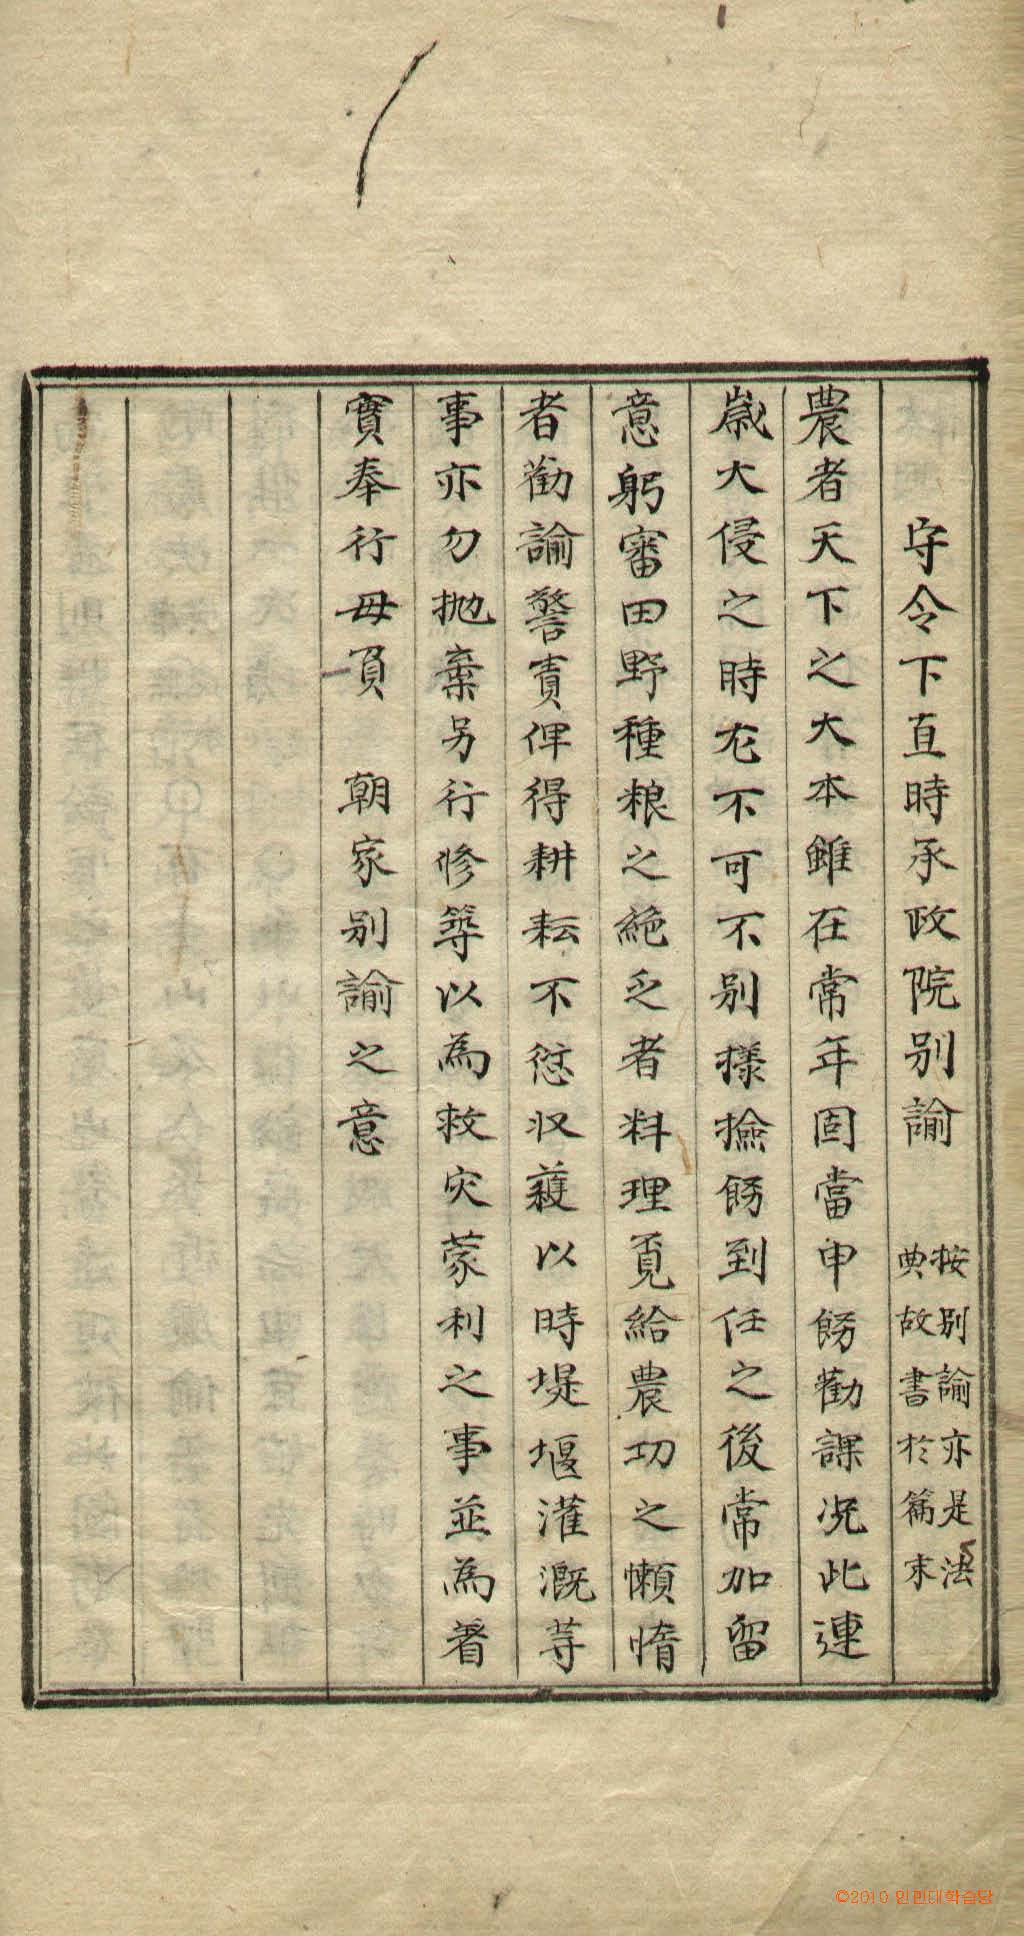 守令下直時承政院別諭 按別諭亦是法
典故書於篇末
農者天下之大本雖在常年固當申飭勸課况此連
歲大侵之時尤不可不別樣撿飭到任之後常加留
意躬審田野種粮之絶乏者料理覓給農功之懶惰
者勸諭警責俾得耕耘不愆収穫以時堤堰灌漑等
事亦勿抛棄另行修築以為救灾蒙利之事並為着
實奉行毋負 朝家別諭之意
©2010 인민대학습당